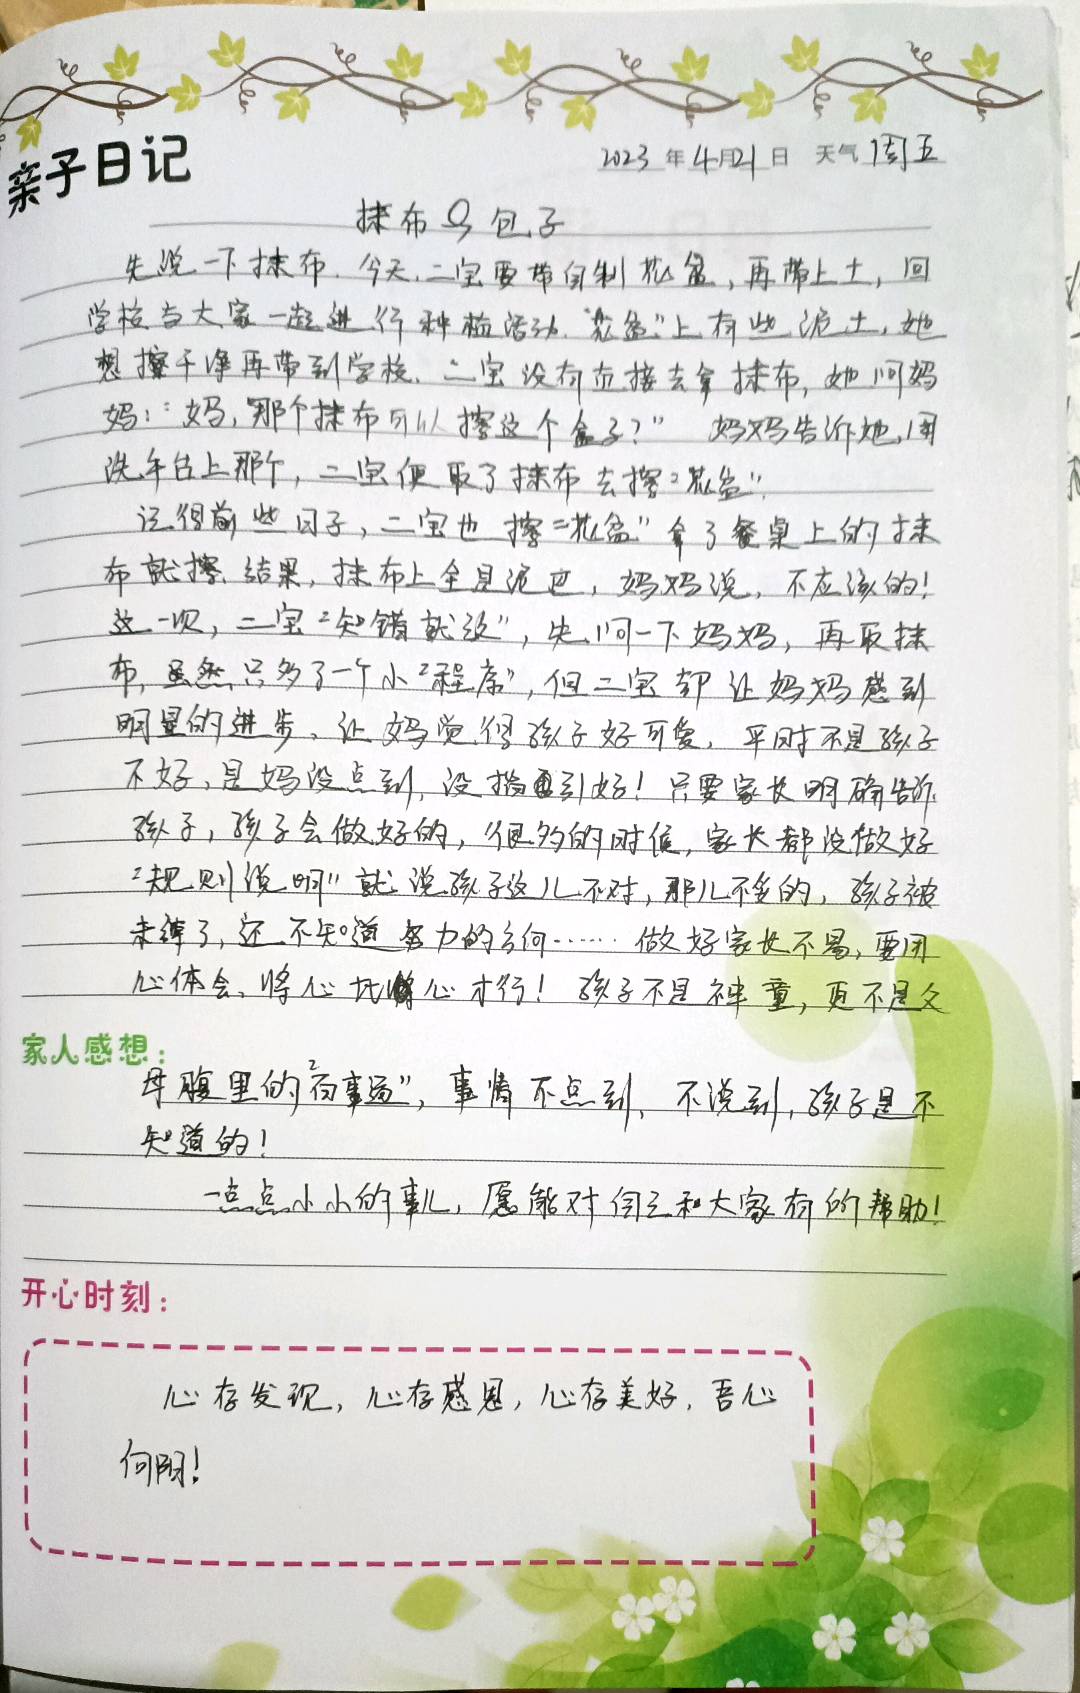 亲子日记
2023 年 4 月 21 日 天气 周五
抹布与包子
先说一下抹布.今天,二宝要带自制花盆,再带上土,回
学校与大家一起进行种植活动."花盆"上有些泥土,她
想擦干净再带到学校.二宝没有直接去拿抹布,她问妈
妈:"妈,那个抹布可以擦这个盒子?" 妈妈告诉她,用
洗手台上那个,二宝便取了抹布去擦"花盆".
记得前些日子,二宝也擦"花盆"拿了餐桌上的抹
布就擦.结果,抹布上全是泥巴,妈妈说,不应该的!
这一次,二宝"知错就改",先问一下妈妈,再取抹
布,虽然只多了一个小"程序",但二宝却让妈妈感到
明显的进步、让妈觉得孩子好可爱.平时不是孩子
不好,是妈没点到,没指引好!只要家长明确告诉
孩子,孩子会做好的,很多的时候,家长都没做好
"规则说明"就说孩子这儿不对,那儿不多的,孩子被
未绎了,还不知道努力的方向……做好家长不易,要用
心体会、将心比心才行!孩子不是神童,更不是父
家人感想:
母腹里的"百事通",事情不点到、不说到,孩子是不
知道的!
一点点小小的事儿,愿能对自己和大家有的帮助!
开心时刻:
心存发现,心存感恩,心存美好,吾心
向阳!